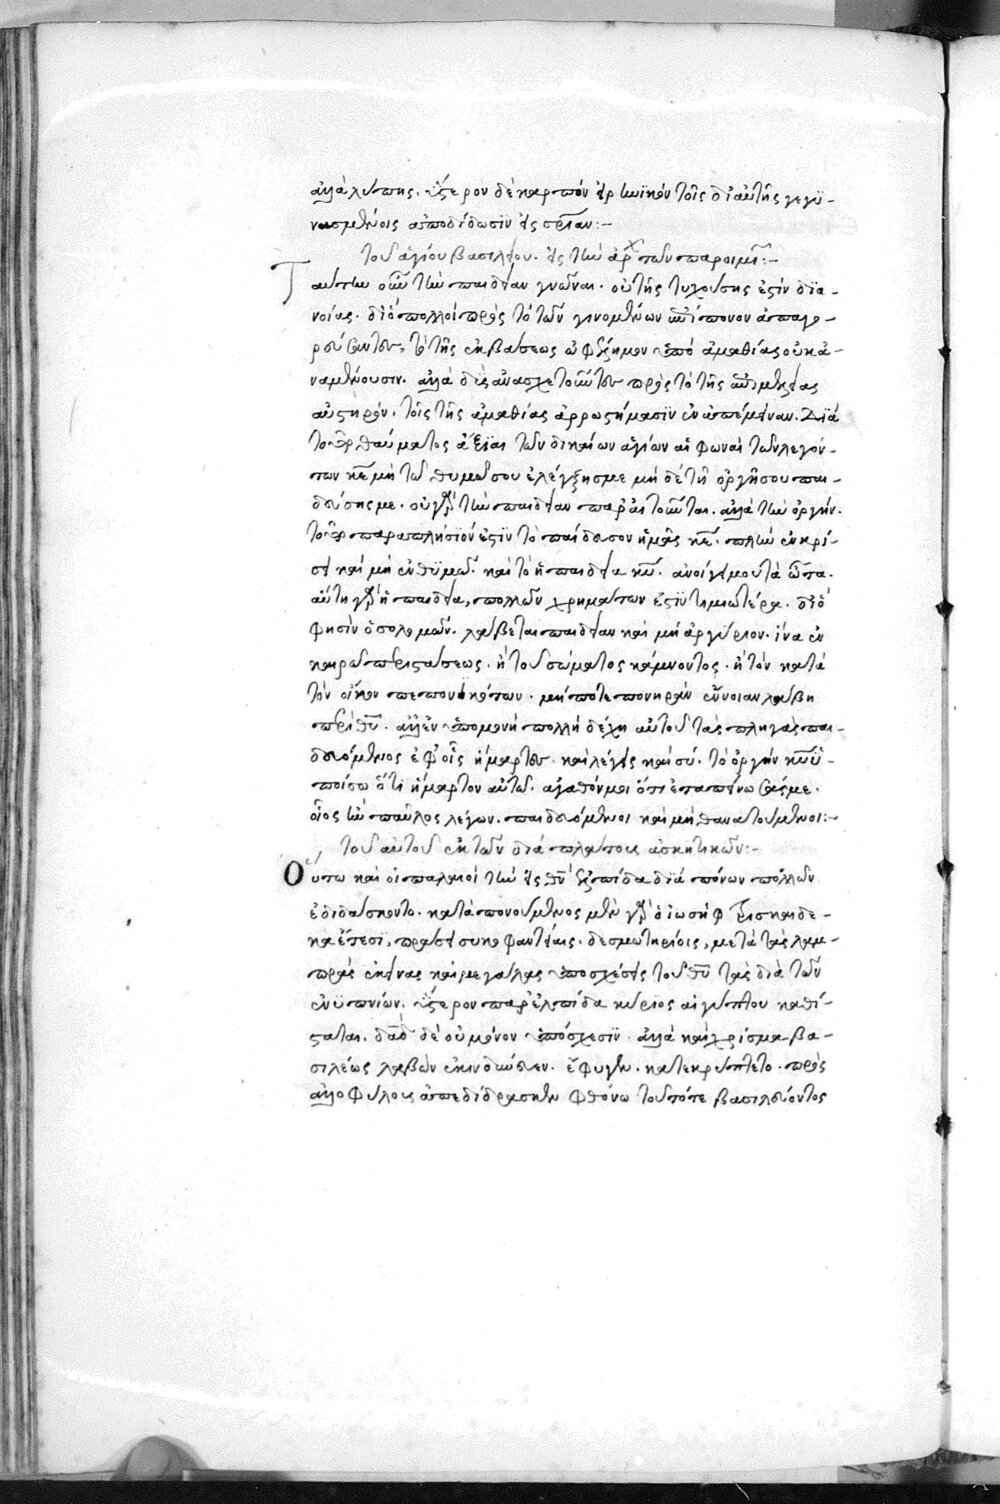 ἀλλὰ λύπης. ὕστερον δὲ καρπὸν εἰρηνικὸν τοῖς δι' αὐτῆς γεγυ-
μνασμένοις ἀποδίδωσιν εἰς σρίαν:-
τοῦ ἁγίου βασιλείου. εἰς τὴν ἀρχ τῶν παροιμι:-
Ταύτην οὖν τὴν παιδείαν γνῶναι. οὐ τῆς τυχούσης ἐστὶν δια-
νοίας. διὸ πολλοὶ πρὸς τὸ τῶν γινομένων ἐπίπονον ἀπαγο-
ρεύσαντες, τὸ τῆς ἐκβάσεως ὠφέλιμον ὑπὸ ἀμαθίας οὐκ ἀ-
ναμένουσιν. ἀλλὰ δυσανασχετοῦντες πρὸς τὸ τῆς ἐπιμελείας
αὐστηρὸν. τοῖς τῆς ἀμαθίας ἀρρωστήμασιν ἐναπέμειναν. Διὰ
τοῦτο θαύματος ἄξιαι τῶν δικαίων ἁγίων αἱ φωναὶ τῶν λεγόν-
των κε μὴ τῶ θυμῶ σου ἐλέγξης με μὴ δὲ τῆ ὀργῆ σου παι-
δεύσης με. οὐ γὰρ τὴν παιδείαν παραιτοῦνται. ἀλλὰ τὴν ὀργήν.
τούτω παραπλήσιόν ἐστιν τὸ παίδευσον ἡμᾶς κε. πλὴν ἐν κρί-
σει καὶ μὴ ἐν θυμῶ. καὶ τὸ ἡ παιδεία κυ. ἀνοίγει μου τὰ ὦτα.
αὕτη γὰρ ἡ παιδεία, πολλῶν χρημάτων ἐστὶν τιμιωτέρα. διὸ
φησὶν ὁ σολομών. λάβετε παιδείαν καὶ μὴ ἀργύριον. ἵνα ἐν
καιρῶ περιστάσεως. ἢ τοῦ σώματος κάμνοντος. ἢ τῶν κατὰ
τὸν οἶκον πεπονηκότων. μήποτε πονηρὰν ἔννοιαν λάβη
περὶ θυ. ἀλλ' ἐν ὑπομονῆ πολλῆ δέχη αὐτοῦ τὰς πληγὰς παι-
δευόμενος ἐφ' οἷς ἥμαρτες. καὶ λέγεις καὶ σύ. τὸ ὀργὴν κυ ὑ-
ποίσω ὅτι ἥμαρτον αὐτῶ. ἀγαθόν μοι ὅτι ἐταπείνωσάς με.
οἷος ἦν παῦλος λέγων. παιδευόμενοι καὶ μὴ θανατούμενοι:-
τοῦ αὐτοῦ ἐκ τῶν διὰ πλάτους ἀσκητικῶν:-
Οὕτω καὶ οἱ παλαιοὶ τὴν εἰς θν ἐλπίδα διὰ πόνων πολλῶν
ἐδιδάσκοντο. καταπονούμενος μὲν γὰρ ὁ ἰωσὴφ τρισκαιδε-
κα ἔτεσι, πράσει συκοφαντίαις. δεσμωτηρίοις, μετὰ τὰς λαμ-
πρὰς ἐκείνας καὶ μεγάλας ὑποσχέσεις τοῦ θυ τὰς διὰ τῶν
ἐνυπνίων. ὕστερον παρ' ἐλπίδα κύριος αἰγύπτου καθί-
σταται. δαδ δὲ οὐ μόνον ὑπόσχεσιν. ἀλλὰ καὶ χρίσμα βα-
σιλέως λαβὼν ἐκινδύνευεν. ἔφυγεν. κατεκρύπτετο. πρὸς
ἀλλοφύλους ἀπεδίδρασκεν φθόνω τοῦ τότε βασιλεύοντος